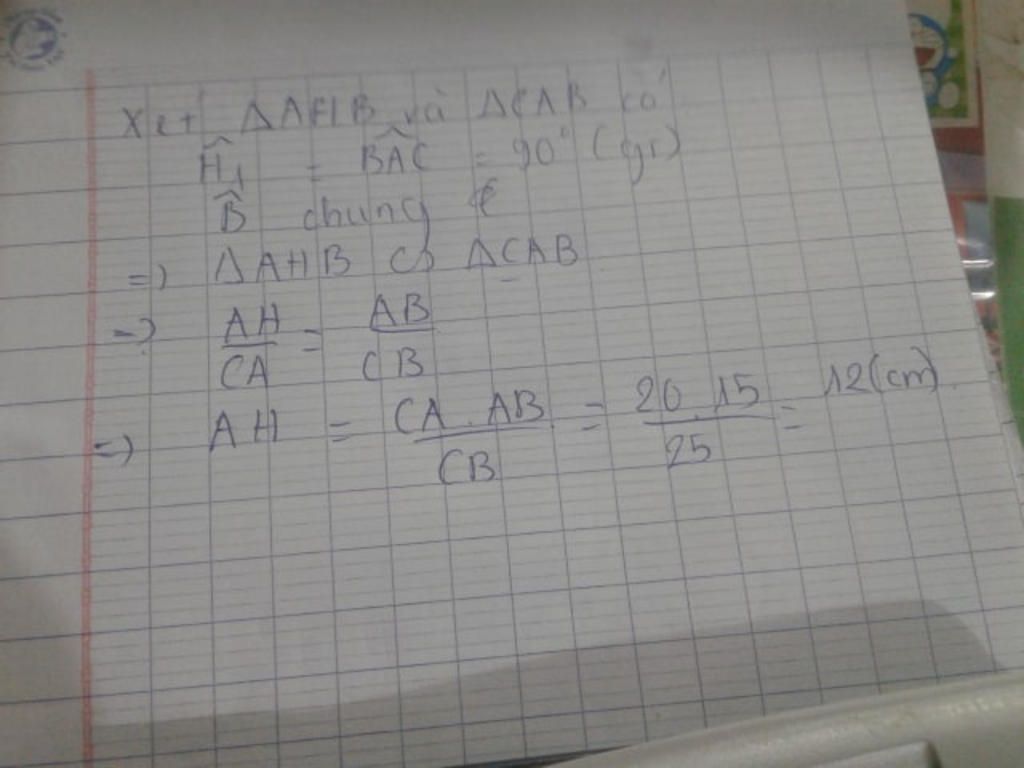 Xét ΔAHB và ΔCAB có
Ĥ₁ = BÂC = 90° (gt)
B̂ chung
=> ΔAHB ∽ ΔCAB
=> AH/CA = AB/CB
=> AH = CA.AB/CB = 20.15/25 = 12(cm).